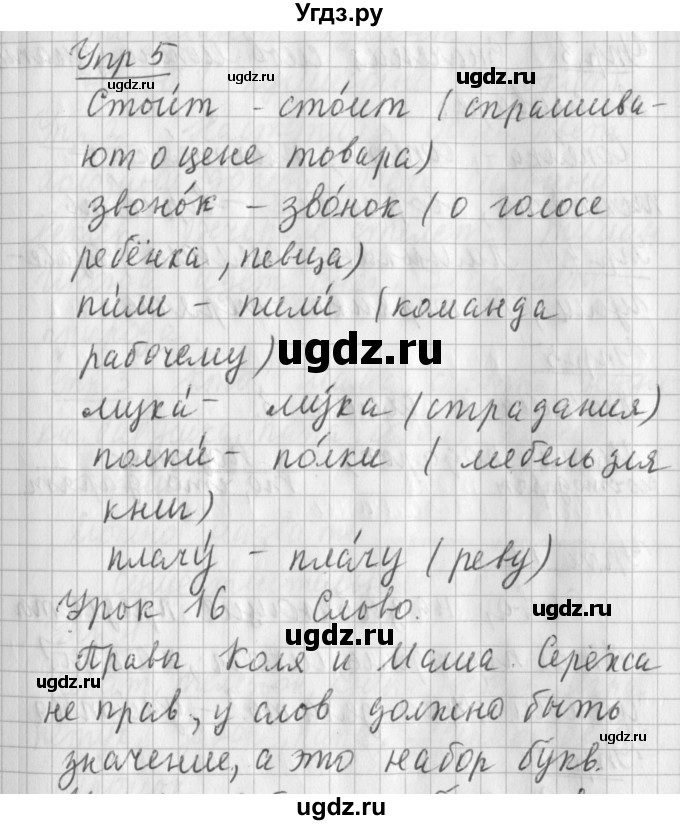 Угдз.ру
Упр 5
Стои́т - сто́ит (спрашива-
ют о цене товара)
звоно́к - зво́нок (о голосе
ребёнка, певца)
пи́ли - пили́ (команда
рабочему)
мука́ - му́ка (страдания)
полки́ - по́лки (мебель для
книг)
плачу́ - пла́чу (реву)
Урок 16 Слово.
Правы Коля и Маша. Серёжа
не прав, у слов должно быть
значение, а это набор букв.
ugdz.ru